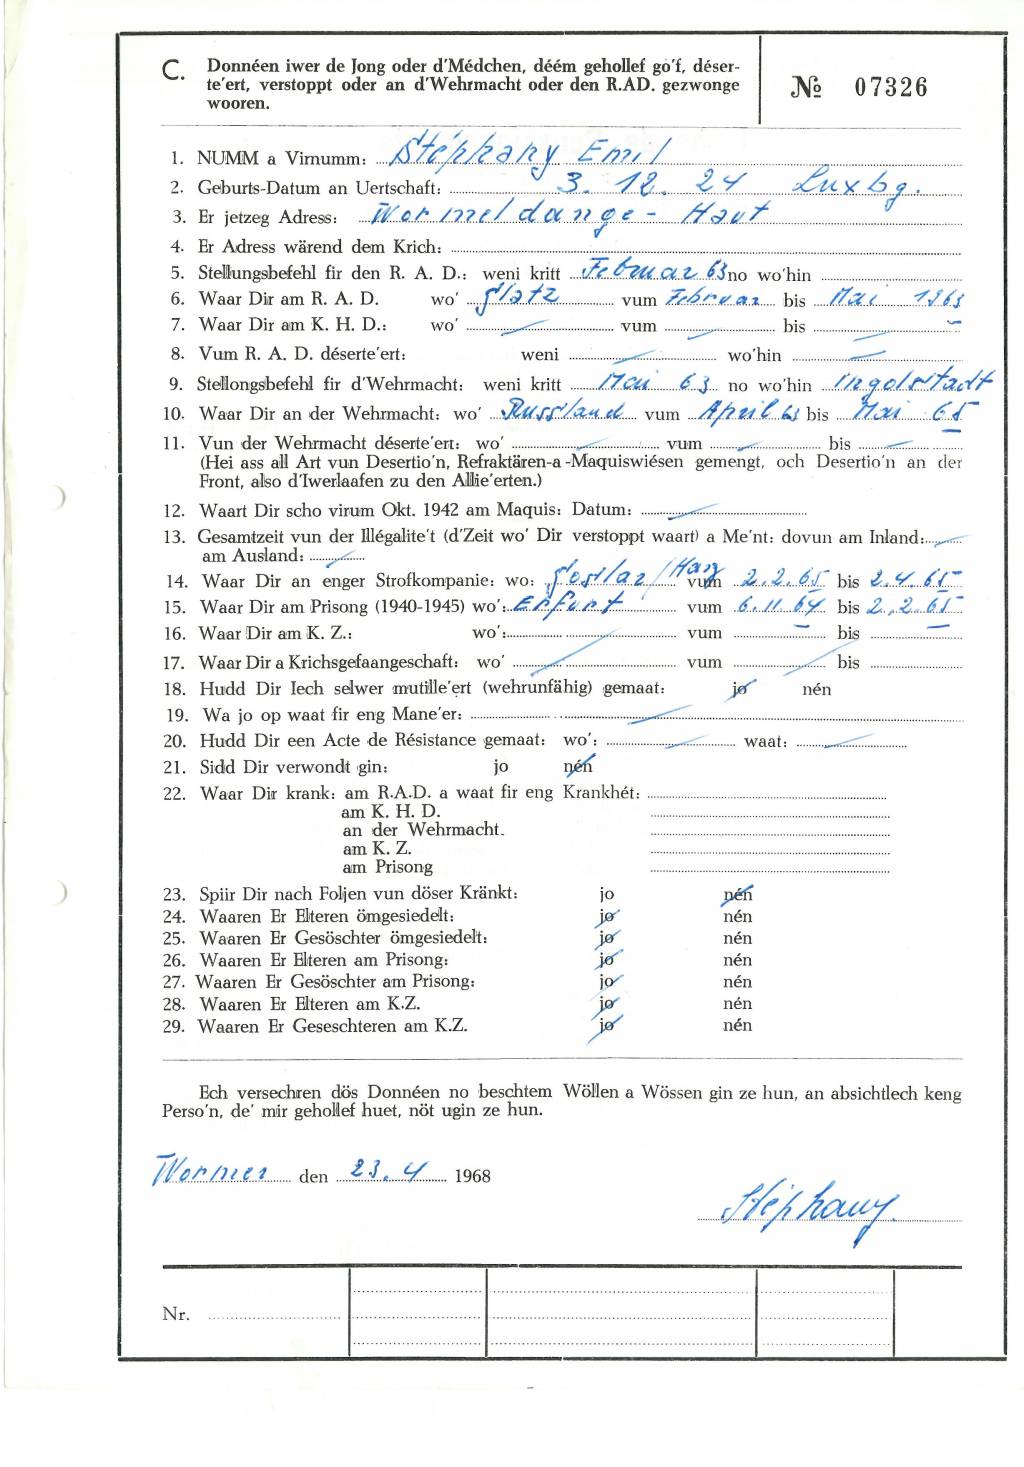 C. Donnéen iwer de Jong oder d'Médchen, déém gehollef go'f, déser-
te'ert, verstoppt oder an d'Wehrmacht oder den R.AD. gezwonge
wooren.
№ 07326
1. NUMM a Virnumm: Stéphany Emil
2. Geburts-Datum an Uertschaft: 3. 12. 24 Luxbg.
3. Er jetzeg Adress: Wormeldange - Haut
4. Er Adress wärend dem Krich:
5. Stellungsbefehl fir den R. A. D.: weni kritt Februar 63 no wo'hin
6. Waar Dir am R. A. D. wo' Glatz vum Februar bis Mai 1963
7. Waar Dir am K. H. D.: wo' vum bis
8. Vum R. A. D. déserte'ert: weni wo'hin
9. Stellongsbefehl fir d'Wehrmacht: weni kritt Mai 63 no wo'hin Ingolstadt
10. Waar Dir an der Wehrmacht: wo' Russland vum April 63 bis Mai 65
11. Vun der Wehrmacht déserte'ert: wo' vum bis
(Hei ass all Art vun Desertio'n, Refraktären-a-Maquiswiésen gemengt, och Desertio'n an der
Front, also d'Iwerlaafen zu den Allie'erten.)
12. Waart Dir scho virum Okt. 1942 am Maquis: Datum:
13. Gesamtzeit vun der Illégalite't (d'Zeit wo' Dir verstoppt waart) a Me'nt: dovun am Inland:
am Ausland:
14. Waar Dir an enger Strofkompanie: wo: Goslar/Harz vum 2.2.65 bis 2.4.65
15. Waar Dir am Prisong (1940-1945) wo': Erfurt vum 6.11.64 bis 2.2.65
16. Waar Dir am K. Z.: wo': vum bis
17. Waar Dir a Krichsgefaangeschaft: wo' vum bis
18. Hudd Dir Iech selwer mutille'ert (wehrunfähig) gemaat: jo nén
19. Wa jo op waat fir eng Mane'er:
20. Hudd Dir een Acte de Résistance gemaat: wo': waat:
21. Sidd Dir verwondt gin: jo nén
22. Waar Dir krank: am R.A.D. a waat fir eng Krankhét:
am K. H. D.
an der Wehrmacht.
am K. Z.
am Prisong
23. Spiir Dir nach Foljen vun döser Kränkt: jo nén
24. Waaren Er Elteren ömgesiedelt: jo nén
25. Waaren Er Gesöschter ömgesiedelt: jo nén
26. Waaren Er Elteren am Prisong: jo nén
27. Waaren Er Gesöschter am Prisong: jo nén
28. Waaren Er Elteren am K.Z. jo nén
29. Waaren Er Geseschteren am K.Z. jo nén
Ech versechren dös Donnéen no beschtem Wöllen a Wössen gin ze hun, an absichtlech keng
Perso'n, de' mir gehollef huet, nöt ugin ze hun.
Wormer den 23.4 1968
Stéphany.
Nr.